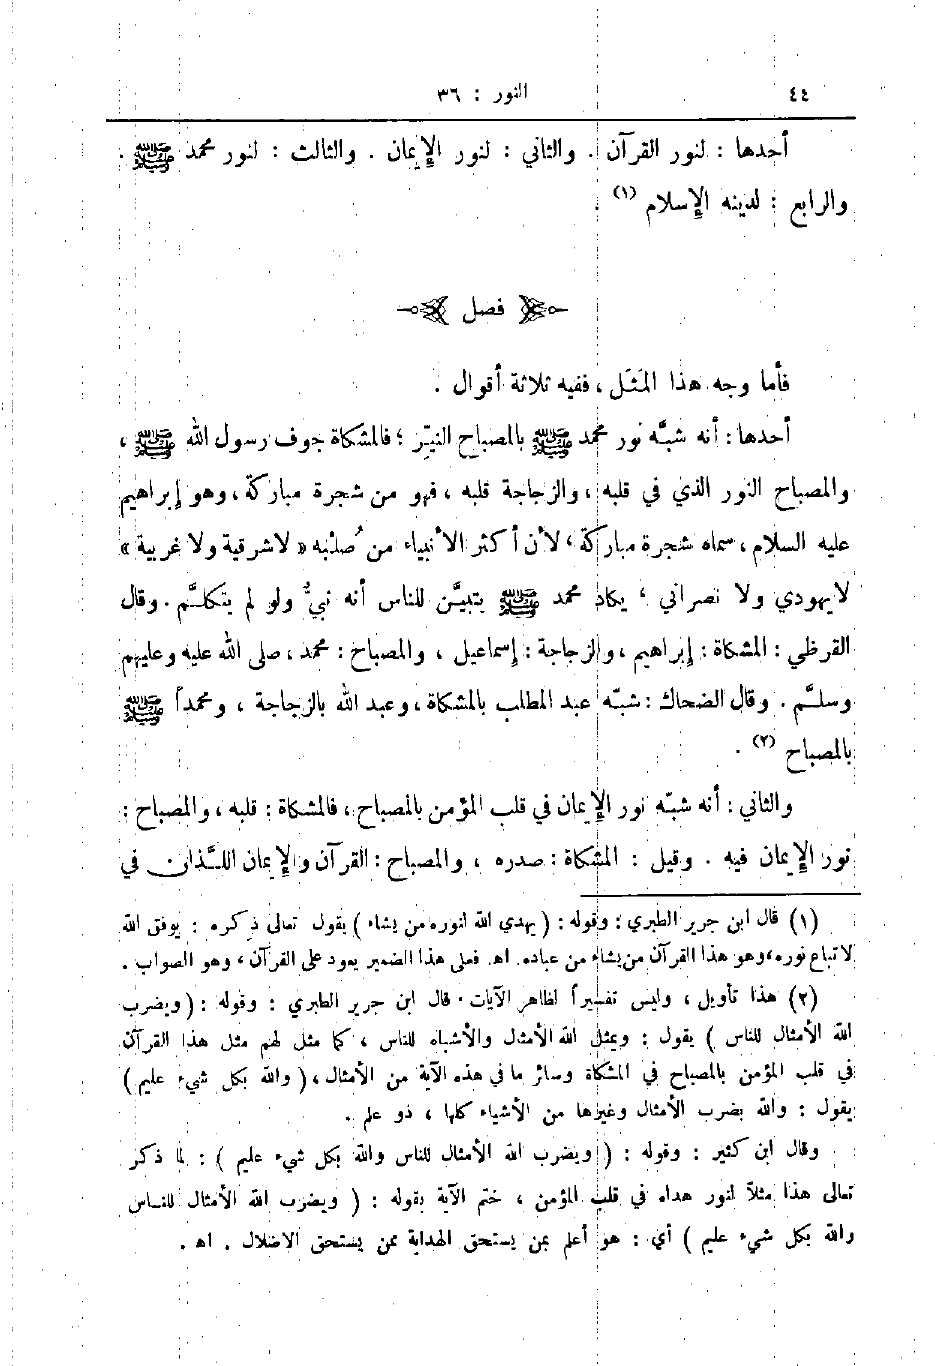 ٤٤ النور : ٣٦
أحدها : لنور القرآن . والثاني : لنور الإيمان . والثالث : لنور محمد ﷺ .
والرابع : لدينه الإسلام (١) .
فصل
فأما وجه هذا المَثَل ، ففيه ثلاثة أقوال .
أحدها : أنه شبَّه نور محمد ﷺ بالمصباح النيِّر ؛ فالمشكاة جوف رسول الله ﷺ ،
والمصباح النور الذي في قلبه ، والزجاجة قلبه ، فهو من شجرة مباركة ، وهو إبراهيم
عليه السلام ، سماه شجرة مباركة ، لأن أكثر الأنبياء من صُلْبه « لا شرقية ولا غربية »
لا يهودي ولا نصراني ، يكاد محمد ﷺ يتبيَّن للناس أنه نبيٌّ ولو لم يتكلَّم . وقال
القرظي : المشكاة : إبراهيم ، والزجاجة : إسماعيل ، والمصباح : محمد ، صلى الله عليه وعليهم
وسلَّم . وقال الضحاك : شبّه عبد المطلب بالمشكاة ، وعبد الله بالزجاجة ، ومحمداً ﷺ
بالمصباح (٢) .
والثاني : أنه شبّه نور الإيمان في قلب المؤمن بالمصباح ، فالمشكاة : قلبه ، والمصباح :
نور الإيمان فيه . وقيل : المشكاة : صدره ، والمصباح : القرآن والإيمان اللَّذان في
(١) قال ابن جرير الطبري : وقوله : ( يهدي الله لنوره من يشاء ) يقول تعالى ذكره : يوفق الله
لاتباع نوره ، وهو هذا القرآن من يشاء من عباده . اه . فعلى هذا الضمير يعود على القرآن ، وهو الصواب .
(٢) هذا تأويل ، وليس تفسيراً لظاهر الآيات . قال ابن جرير الطبري : وقوله : ( ويضرب
الله الأمثال للناس ) يقول : ويمثل الله الأمثال والأشباه للناس ، كما مثل لهم مثل هذا القرآن
في قلب المؤمن بالمصباح في المشكاة وسائر ما في هذه الآية من الأمثال ، ( والله بكل شيء عليم )
يقول : والله بضرب الأمثال وغيرها من الأشياء كلها ، ذو علم .
وقال ابن كثير : وقوله : ( ويضرب الله الأمثال للناس والله بكل شيء عليم ) : لما ذكر
تعالى هذا مثلاً لنور هداه في قلب المؤمن ، ختم الآية بقوله : ( ويضرب الله الأمثال للناس
والله بكل شيء عليم ) أي : هو أعلم بمن يستحق الهداية ممن يستحق الاضلال . اه .